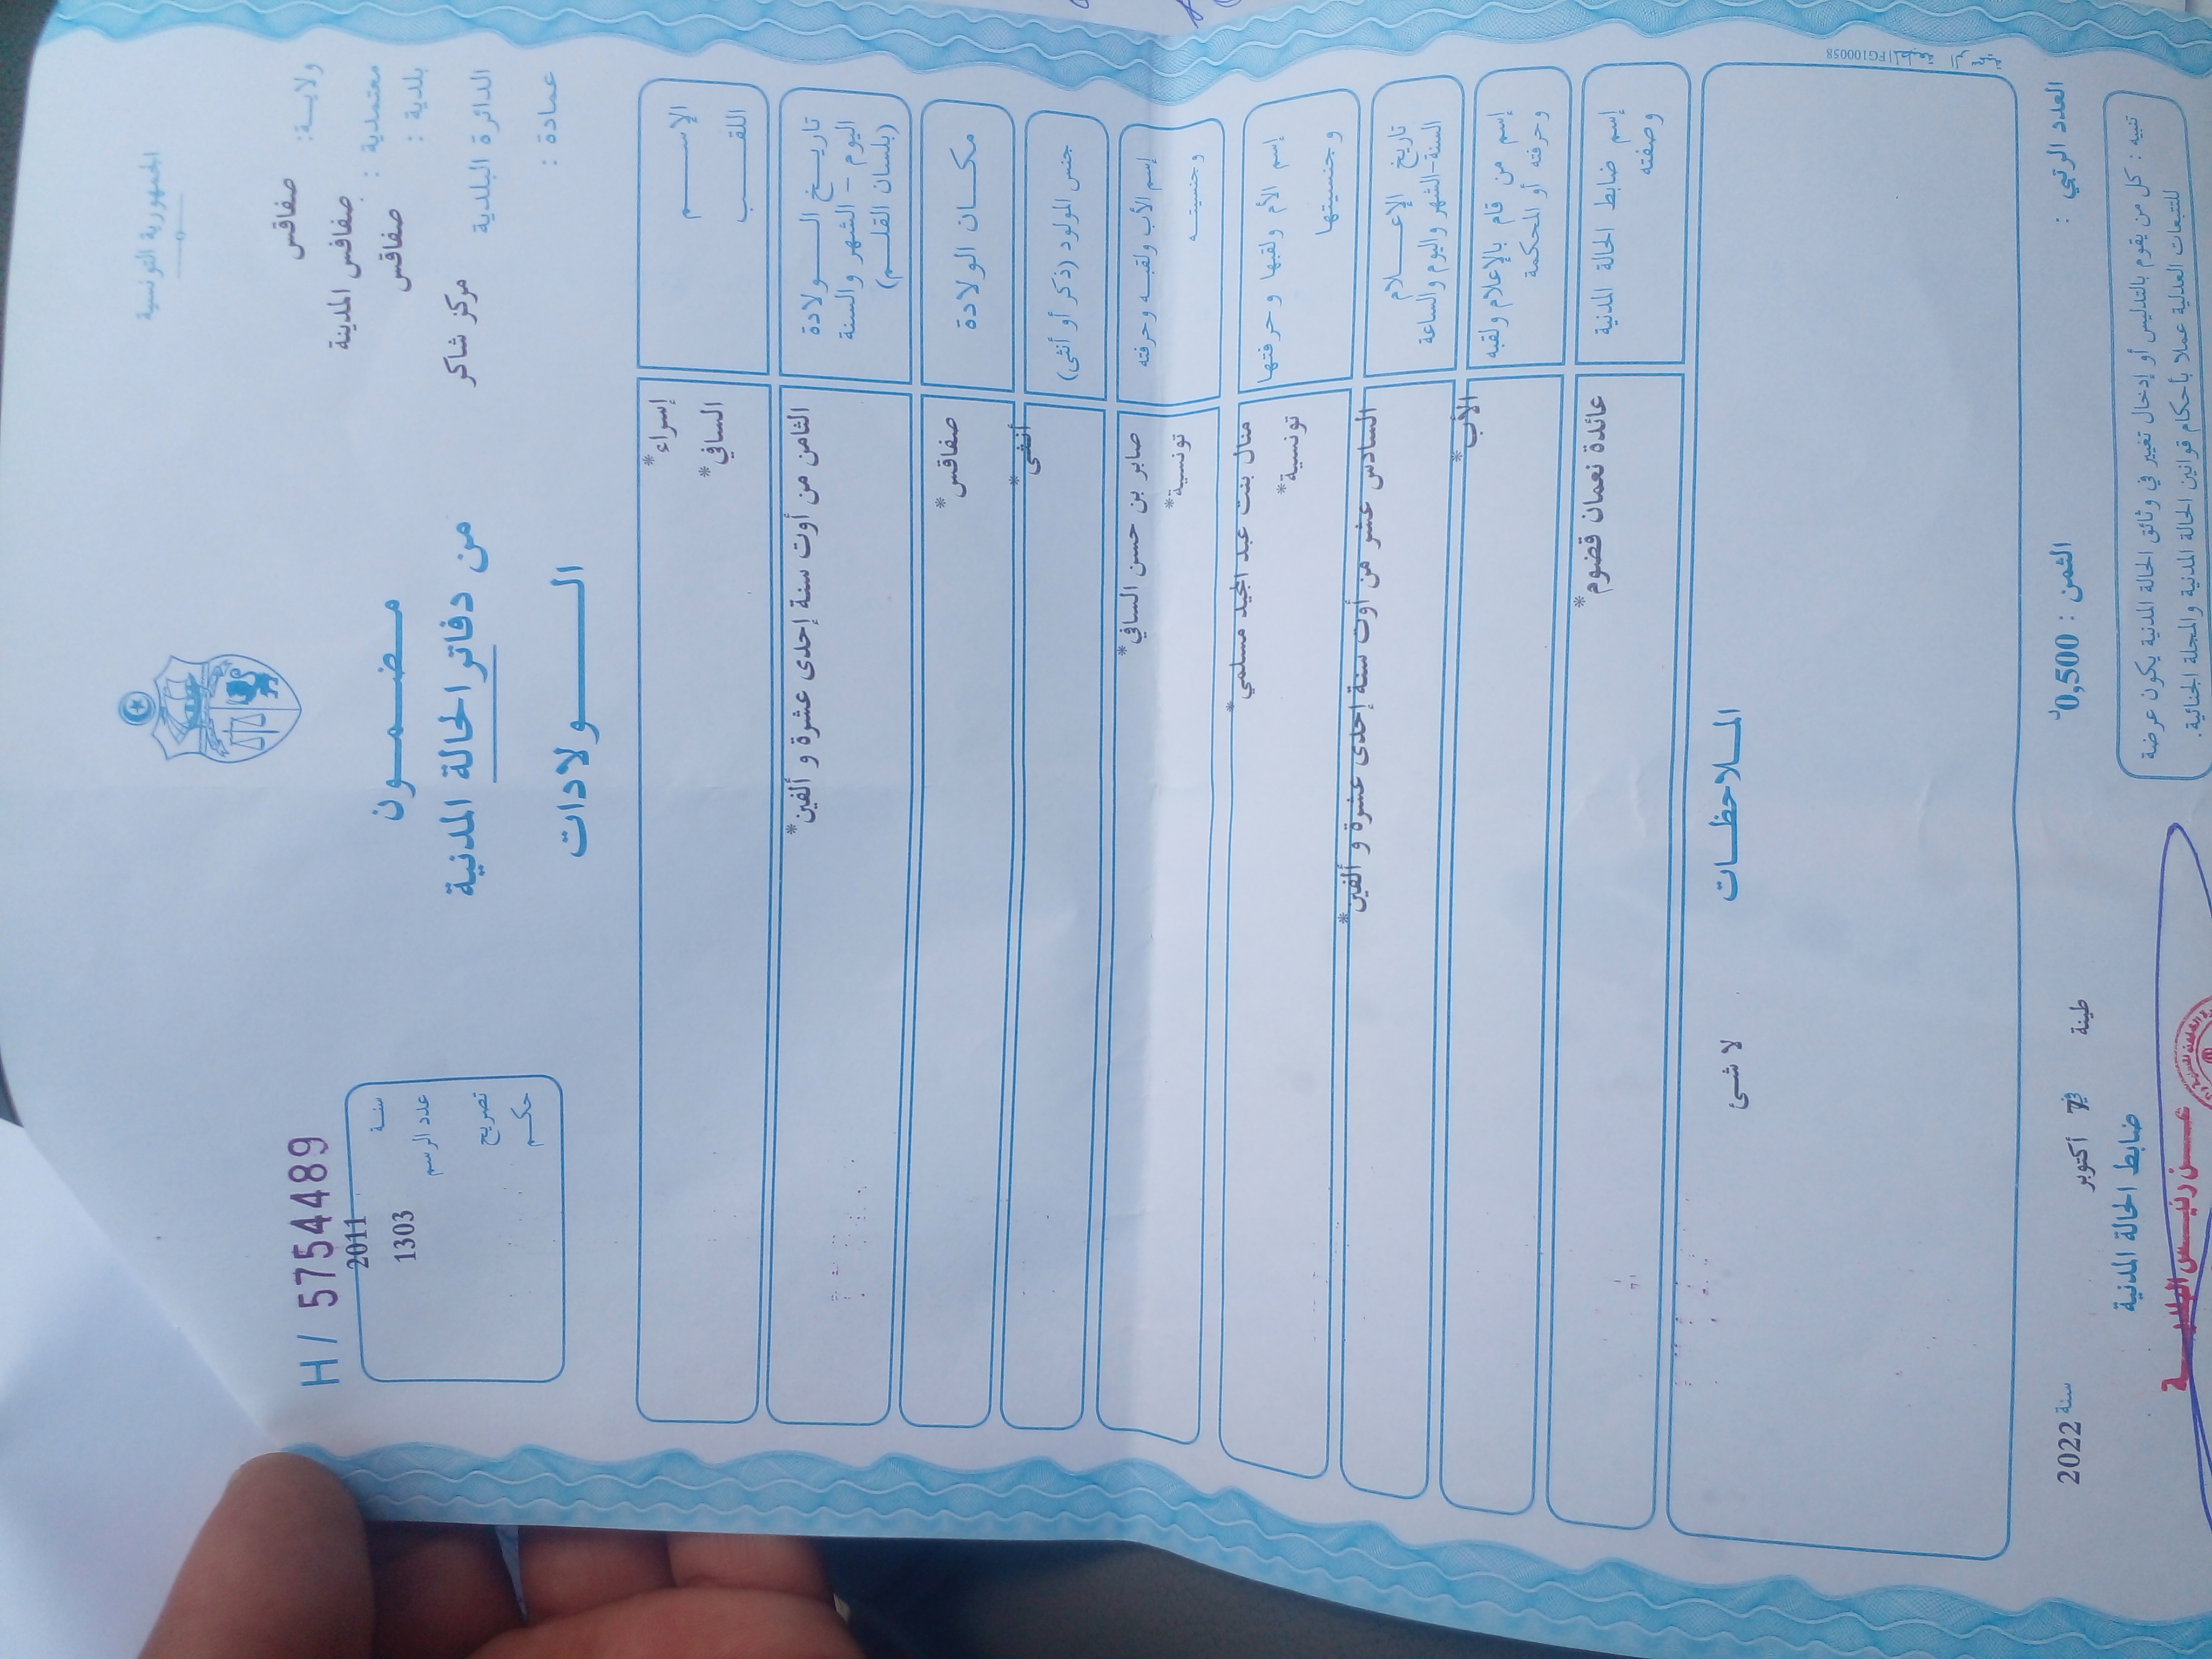 الجمهورية التونسية
ولايــة: صفاقس
معتمدية : صفاقس المدينة
بلدية : صفاقس
الدائرة البلدية مركز شاكر
عمادة :
مضمــون
من دفاتر الحالة المدنية
الــولادات
H / 5754489
سنة 2011
عدد الرسم 1303
تصريح
حكم
الإســم إسراء*
اللقــب السافي*
تاريــخ الــولادة
اليوم – الشهر والسنة
(بلسان القلــم)
الثامن من أوت سنة إحدى عشرة و ألفين*
مكــان الولادة صفاقس*
جنس المولود (ذكر أو أنثى) أنثى*
إسم الأب ولقبــه وحرفته صابر بن حسن السافي*
وجنسيتــه تونسية*
إسم الأم ولقبها وحرفتها منال بنت عبد المجيد مسلمي*
وجنسيتها تونسية*
تاريخ الإعــلام
السنة-الشهر واليوم والساعة
السادس عشر من أوت سنة إحدى عشرة و ألفين*
إسم من قام بالإعلام ولقبه
وحرفته أو المحكمة
الأب*
إسم ضابط الحالة المدنية
وصفته
عائدة نعمان قضوم*
الملاحظــات
لا شئ
FG100058
العدد الرتبي :
الثمن : 0,500 د
طينة في 7 أكتوبر سنة 2022
ضابط الحالة المدنية
تنبيه : كل من يقوم بالتدليس أو إدخال تغيير في وثائق الحالة المدنية يكون عرضة
للتتبعات العدلية عملا بأحكام قوانين الحالة المدنية والمجلة الجنائية.
عــن رئيــس البلديــة